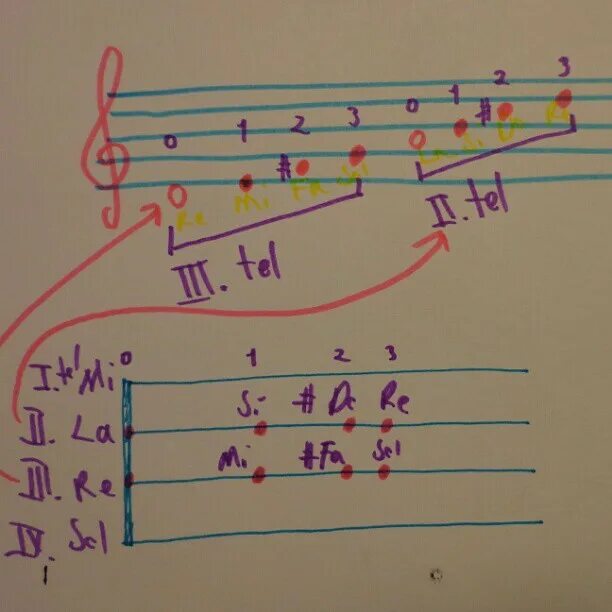 0 1 2 3 0 1 2 3
# #
Re Mi Fa Sol La Si Re
III. tel II. tel
I. tel Mi 0 1 2 3
Si # Do Re
II. La
Mi #Fa Sol
III. Re
IV. Sol